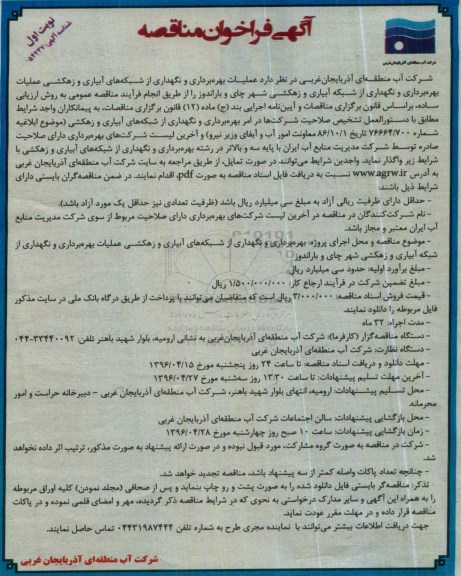 آگهی فراخوان مناقصه
نوبت اول
شرکت آب منطقه‌ای آذربایجان‌غربی
شرکت آب منطقه‌ای آذربایجان‌غربی در نظر دارد عملیات بهره‌برداری و نگهداری از شبکه‌های آبیاری و زهکشی عملیات
بهره‌برداری و نگهداری از شبکه آبیاری و زهکشی شهر چای و باراندوز را از طریق انجام فرآیند مناقصه عمومی به روش ارزیابی
ساده، براساس قانون برگزاری مناقصات و آیین‌نامه اجرایی بند (ج) ماده (۱۲) قانون برگزاری مناقصات، به پیمانکاران واجد شرایط
مطابق با دستورالعمل تشخیص صلاحیت شرکت‌ها در امر بهره‌برداری و نگهداری از شبکه‌های آبیاری و زهکشی (موضوع ابلاغیه
شماره ۷۶۶۶۴/۷۰۰ تاریخ ۸۶/۱۰/۱ معاونت امور آب و آبفای وزیر نیرو) و آخرین لیست شرکت‌های بهره‌برداری دارای صلاحیت
صادره توسط شرکت مدیریت منابع آب ایران با پایه سه و بالاتر در رشته بهره‌برداری و نگهداری از شبکه‌های آبیاری و زهکشی با
شرایط زیر واگذار نماید. واجدین شرایط می‌توانند در صورت تمایل، از طریق مراجعه به سایت شرکت آب منطقه‌ای آذربایجان غربی
به آدرس www.agrw.ir نسبت به دریافت فایل اسناد مناقصه به صورت pdf، اقدام نمایند. در ضمن مناقصه‌گران بایستی دارای
شرایط ذیل باشند:
- حداقل دارای ظرفیت ریالی آزاد به مبلغ سی میلیارد ریال باشد (ظرفیت تعدادی نیز حداقل یک مورد آزاد باشد).
- نام شرکت‌کنندگان در مناقصه در آخرین لیست شرکت‌های بهره‌برداری دارای صلاحیت مربوط از سوی شرکت مدیریت منابع
آب ایران معتبر و مجاز باشد.
- موضوع مناقصه و محل اجرای پروژه: بهره‌برداری و نگهداری از شبکه‌های آبیاری و زهکشی عملیات بهره‌برداری و نگهداری از
شبکه آبیاری و زهکشی شهر چای و باراندوز
- مبلغ برآورد اولیه: حدود سی میلیارد ریال
- مبلغ تضمین شرکت در فرآیند ارجاع کار: ۱/۵۰۰/۰۰۰/۰۰۰ ریال
- قیمت فروش اسناد مناقصه: ۳/۰۰۰/۰۰۰ ریال است که متقاضیان می‌توانند با پرداخت از طریق درگاه بانک ملی در سایت مذکور
فایل مربوطه را دانلود نمایند.
- مدت اجراء: ۳۲ ماه
- دستگاه مناقصه‌گزار (کارفرما): شرکت آب منطقه‌ای آذربایجان‌غربی به نشانی ارومیه، بلوار شهید باهنر تلفن: ۳۳۴۴۰۰۹۲-۰۴۴
- دستگاه نظارت: شرکت آب منطقه‌ای آذربایجان غربی
- مهلت دانلود و دریافت اسناد مناقصه: تا ساعت ۲۴ روز پنجشنبه مورخ ۱۳۹۶/۰۴/۱۵
- آخرین مهلت تسلیم پیشنهادات: تا ساعت ۱۳:۳۰ روز سه‌شنبه مورخ ۱۳۹۶/۰۴/۲۷
- محل تسلیم پیشنهادات: ارومیه، انتهای بلوار شهید باهنر، شرکت آب منطقه‌ای آذربایجان غربی - دبیرخانه حراست و امور
محرمانه.
- محل بازگشایی پیشنهادات: سالن اجتماعات شرکت آب منطقه‌ای آذربایجان غربی
- زمان بازگشایی پیشنهادات: ساعت ۱۰ صبح روز چهارشنبه مورخ ۱۳۹۶/۰۴/۲۸
- شرکت در مناقصه به صورت گروه مشارکت، مورد قبول نبوده و در صورت ارائه پیشنهاد به صورت مذکور، ترتیب اثر داده نخواهد
شد.
- چنانچه تعداد پاکات واصله کمتر از سه پیشنهاد باشد، مناقصه تجدید خواهد شد.
تذکر: مناقصه‌گر بایستی فایل دانلود شده را به صورت پشت و رو چاپ بنماید و پس از صحافی (مجلد نمودن) کلیه اوراق مربوطه
را به همراه این آگهی و سایر مدارک درخواستی به نحوی که در شرایط مناقصه ذکر گردیده، مهر و امضای قلمی نموده و در پاکات
مناقصه قرار داده و در مهلت مقرر عودت نماید.
جهت دریافت اطلاعات بیشتر می‌توانند با نماینده مجری طرح به شماره تلفن ۰۴۴۳۱۹۸۷۴۴۴ تماس حاصل نمایند.
شرکت آب منطقه‌ای آذربایجان غربی